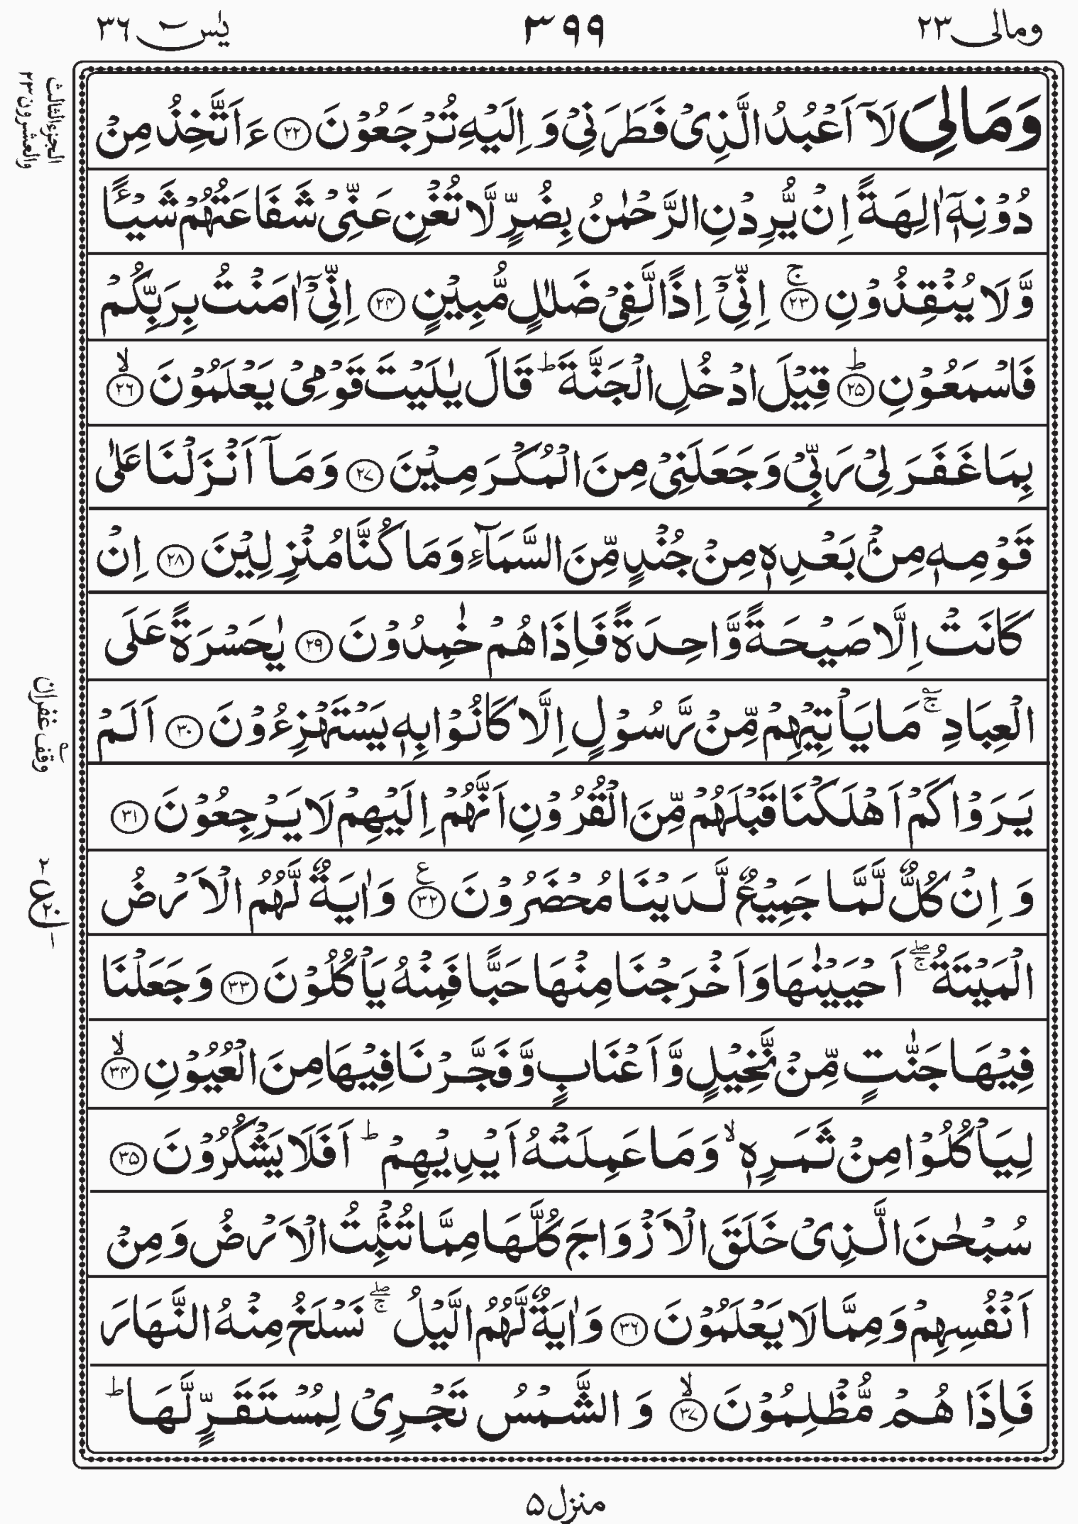 ومالى ٢٣
٣٩٩
يٰس ٣٦
وَمَالِىَ لَاۤ اَعْبُدُ الَّذِىْ فَطَرَنِىْ وَاِلَيْهِ تُرْجَعُوْنَ ﴿٢٢﴾ ءَاَتَّخِذُ مِنْ
دُوْنِهٖۤ اٰلِهَةً اِنْ يُّرِدْنِ الرَّحْمٰنُ بِضُرٍّ لَّا تُغْنِ عَنِّىْ شَفَاعَتُهُمْ شَيْـًٔا
وَّلَا يُنْقِذُوْنِ ﴿٢٣﴾ۚ اِنِّىْۤ اِذًا لَّفِىْ ضَلٰلٍ مُّبِيْنٍ ﴿٢٤﴾ اِنِّىْۤ اٰمَنْتُ بِرَبِّكُمْ
فَاسْمَعُوْنِ ﴿٢٥﴾ؕ قِيْلَ ادْخُلِ الْجَنَّةَ ؕ قَالَ يٰلَيْتَ قَوْمِىْ يَعْلَمُوْنَ ﴿٢٦﴾ۙ
بِمَا غَفَرَ لِىْ رَبِّىْ وَجَعَلَنِىْ مِنَ الْمُكْرَمِيْنَ ﴿٢٧﴾ وَمَاۤ اَنْزَلْنَا عَلٰى
قَوْمِهٖ مِنْۢ بَعْدِهٖ مِنْ جُنْدٍ مِّنَ السَّمَآءِ وَمَا كُنَّا مُنْزِلِيْنَ ﴿٢٨﴾ اِنْ
كَانَتْ اِلَّا صَيْحَةً وَّاحِدَةً فَاِذَا هُمْ خٰمِدُوْنَ ﴿٢٩﴾ يٰحَسْرَةً عَلَى
الْعِبَادِ ۚ مَا يَاْتِيْهِمْ مِّنْ رَّسُوْلٍ اِلَّا كَانُوْا بِهٖ يَسْتَهْزِءُوْنَ ﴿٣٠﴾ اَلَمْ
يَرَوْا كَمْ اَهْلَكْنَا قَبْلَهُمْ مِّنَ الْقُرُوْنِ اَنَّهُمْ اِلَيْهِمْ لَا يَرْجِعُوْنَ ﴿٣١﴾
وَاِنْ كُلٌّ لَّمَّا جَمِيْعٌ لَّدَيْنَا مُحْضَرُوْنَ ﴿٣٢﴾ وَاٰيَةٌ لَّهُمُ الْاَرْضُ
الْمَيْتَةُ ۖۚ اَحْيَيْنٰهَا وَاَخْرَجْنَا مِنْهَا حَبًّا فَمِنْهُ يَاْكُلُوْنَ ﴿٣٣﴾ وَجَعَلْنَا
فِيْهَا جَنّٰتٍ مِّنْ نَّخِيْلٍ وَّاَعْنَابٍ وَّفَجَّرْنَا فِيْهَا مِنَ الْعُيُوْنِ ﴿٣٤﴾ۙ
لِيَاْكُلُوْا مِنْ ثَمَرِهٖ ۙ وَمَا عَمِلَتْهُ اَيْدِيْهِمْ ؕ اَفَلَا يَشْكُرُوْنَ ﴿٣٥﴾
سُبْحٰنَ الَّذِىْ خَلَقَ الْاَزْوَاجَ كُلَّهَا مِمَّا تُنْۢبِتُ الْاَرْضُ وَمِنْ
اَنْفُسِهِمْ وَمِمَّا لَا يَعْلَمُوْنَ ﴿٣٦﴾ وَاٰيَةٌ لَّهُمُ الَّيْلُ ۖۚ نَسْلَخُ مِنْهُ النَّهَارَ
فَاِذَا هُمْ مُّظْلِمُوْنَ ﴿٣٧﴾ۙ وَالشَّمْسُ تَجْرِىْ لِمُسْتَقَرٍّ لَّهَا ؕ
الجزءالثالث
والعشرون ٢٣
وقف غفران
منزل ۵